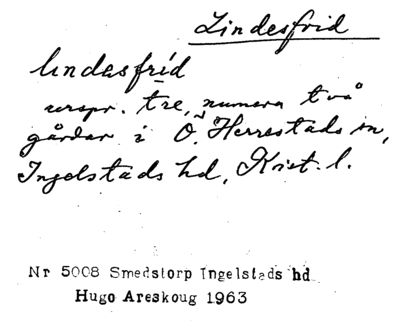 Lindesfrid
lindasfrid
urspr. tre, numera två
gårdar i Ö. Herrestads sn,
Ingelstads hd, Krist. l.
Nr 5008 Smedstorp Ingelstads hd
Hugo Areskoug 1963